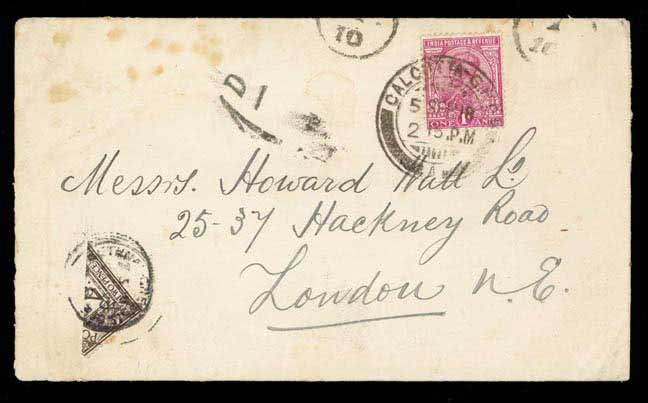 10
10
D 1
INDIA POSTAGE & REVENUE
CALCUTTA G.P.O.
5 SEP 18
2 15 P.M
ONE 1 ANNA
Messrs. Howard Wall Ld
25-37 Hackney Road
London N.E.